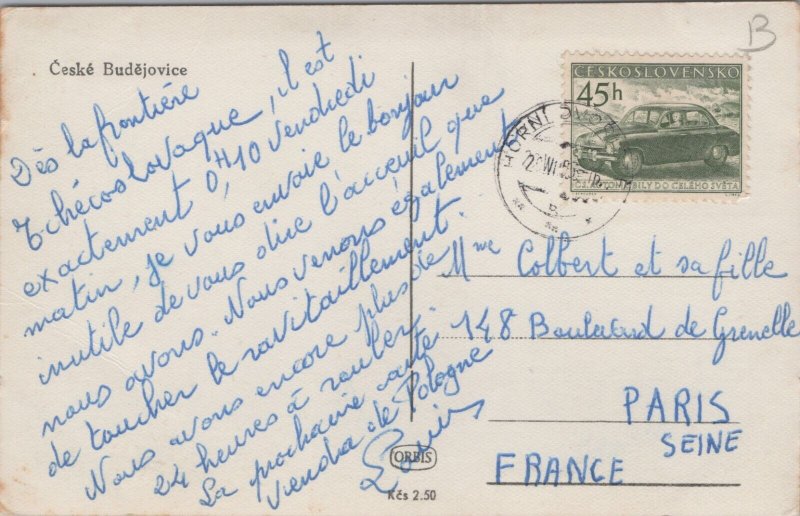 České Budějovice
Dès la frontière
Tchécoslovaque, il est
exactement 0H10 vendredi
matin, je vous envoie le bonjour
inutile de vous dire l'acceuil que
nous avons. Nous venons également
de toucher le ravitaillement.
Nous avons encore plus de
24 heures à rouler.
La prochaine carte
viendra de Pologne
ORBIS
Kčs 2.50
B
ČESKOSLOVENSKO
45h
ČS. AUTOMOBILY DO CELÉHO SVĚTA
HORNÍ
Mme Colbert et sa fille
148 Boulevard de Grenelle
PARIS
SEINE
FRANCE